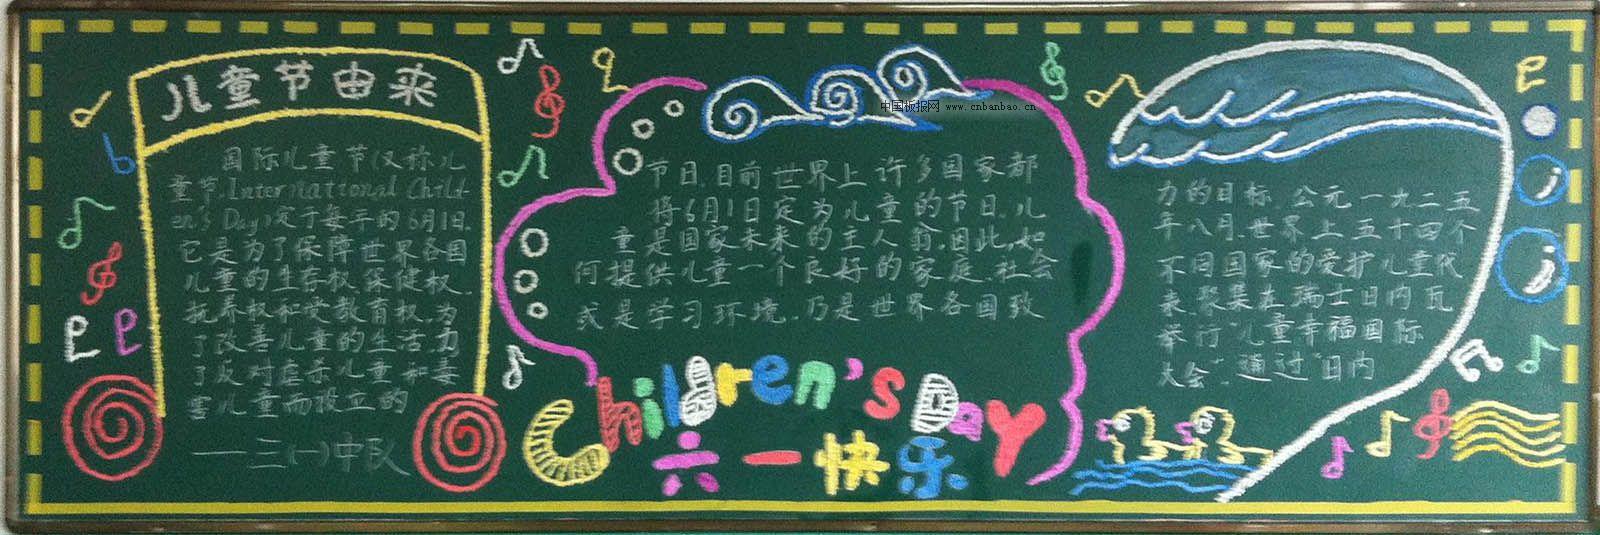 儿童节由来
国际儿童节(又称儿
童节,International Child-
en's Day)定于每年的6月1日.
它是为了保障世界各国
儿童的生存权.保健权.
抚养权和受教育权,为
了改善儿童的生活,为
了反对虐杀儿童和毒
害儿童而设立的
——三(一)中队
中国板报网 www.cnbanbao.cn
节日.目前世界上许多国家都
将6月1日定为儿童的节日.儿
童是国家未来的主人翁.因此,如
何提供儿童一个良好的家庭.社会
或是学习环境.乃是世界各国致
Children's Day
六一快乐
力的目标.公元一九二五
年八月.世界上五十四个
不同国家的爱护儿童代
来.聚集在瑞士日内瓦
举行"儿童幸福国际
大会".通过"日内